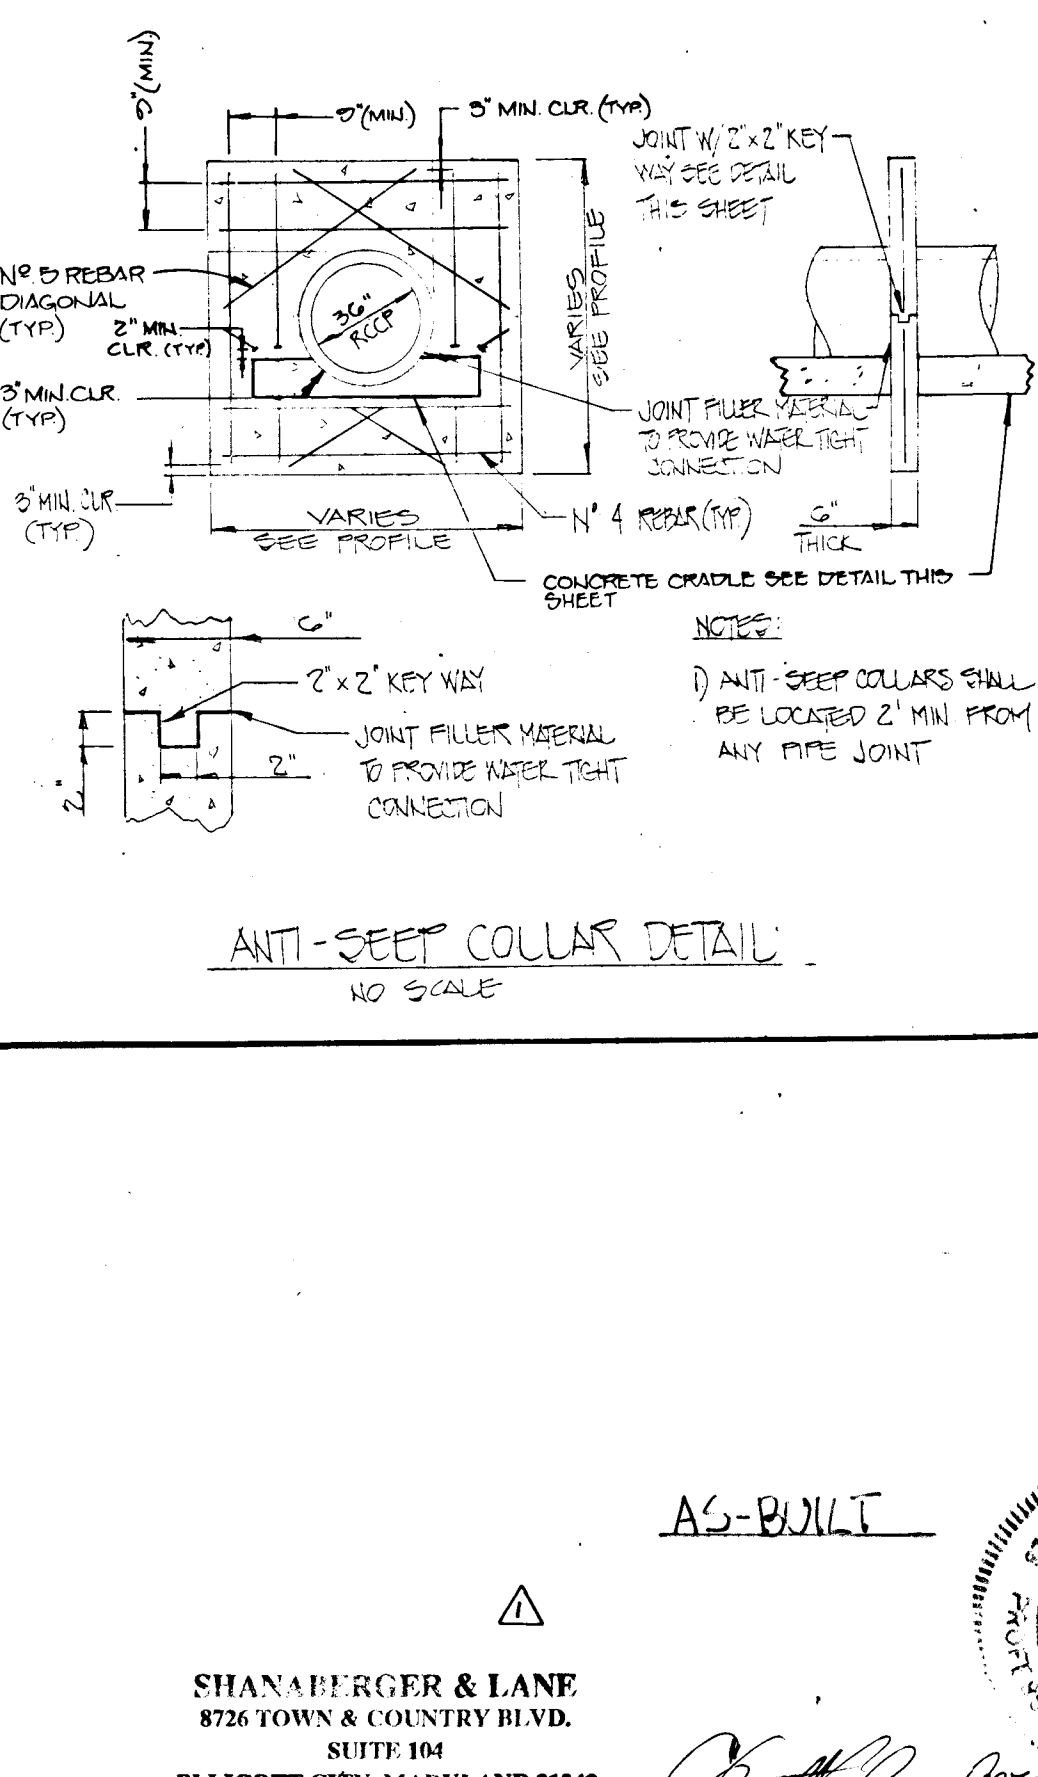 9"(MIN)
9"(MIN.)
3" MIN. CLR. (TYP.)
JOINT W/ 2"x2" KEY
WAY SEE DETAIL
THIS SHEET
Nº 5 REBAR
DIAGONAL
(TYP.)
2" MIN.
CLR. (TYP)
36"
RCCP
VARIES
SEE PROFILE
3" MIN. CLR.
(TYP.)
JOINT FILLER MATERIAL
TO PROVIDE WATER TIGHT
CONNECTION
3" MIN. CLR
(TYP.)
VARIES
SEE PROFILE
Nº 4 REBAR (TYP.)
6"
THICK
CONCRETE CRADLE SEE DETAIL THIS
SHEET
6"
2" x 2" KEY WAY
JOINT FILLER MATERIAL
TO PROVIDE WATER TIGHT
CONNECTION
2"
2"
NOTES:
1) ANTI-SEEP COLLARS SHALL
BE LOCATED 2' MIN. FROM
ANY PIPE JOINT
ANTI-SEEP COLLAR DETAIL
NO SCALE
AS-BUILT
1
SHANABERGER & LANE
8726 TOWN & COUNTRY BLVD.
SUITE 104